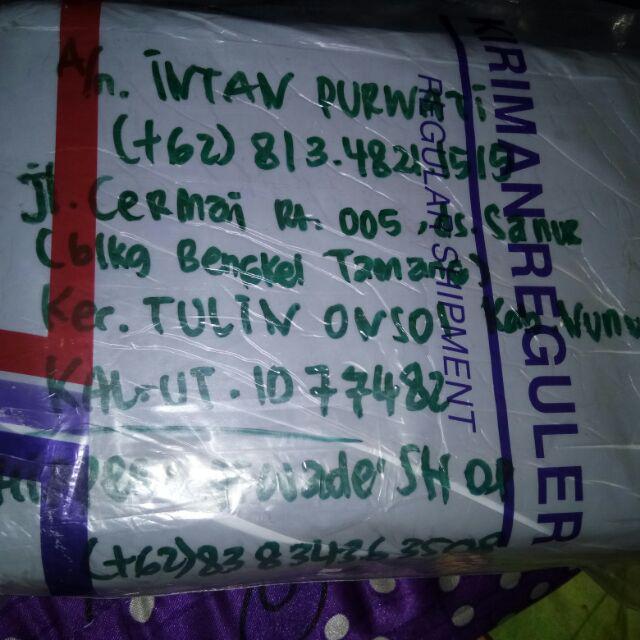 A/n. INTAN PURWATI
(+62) 813.4821
Jl. Cermai Rt. 005, Ds. Sanur
(blkg Bengkel Tamara)
Kec. TULIN ONSOI Kab. Nunu
KAL-UT. ID 77482
SHOP
(+62)83 83426
KIRIMAN REGULER
REGULAR SHIPMENT